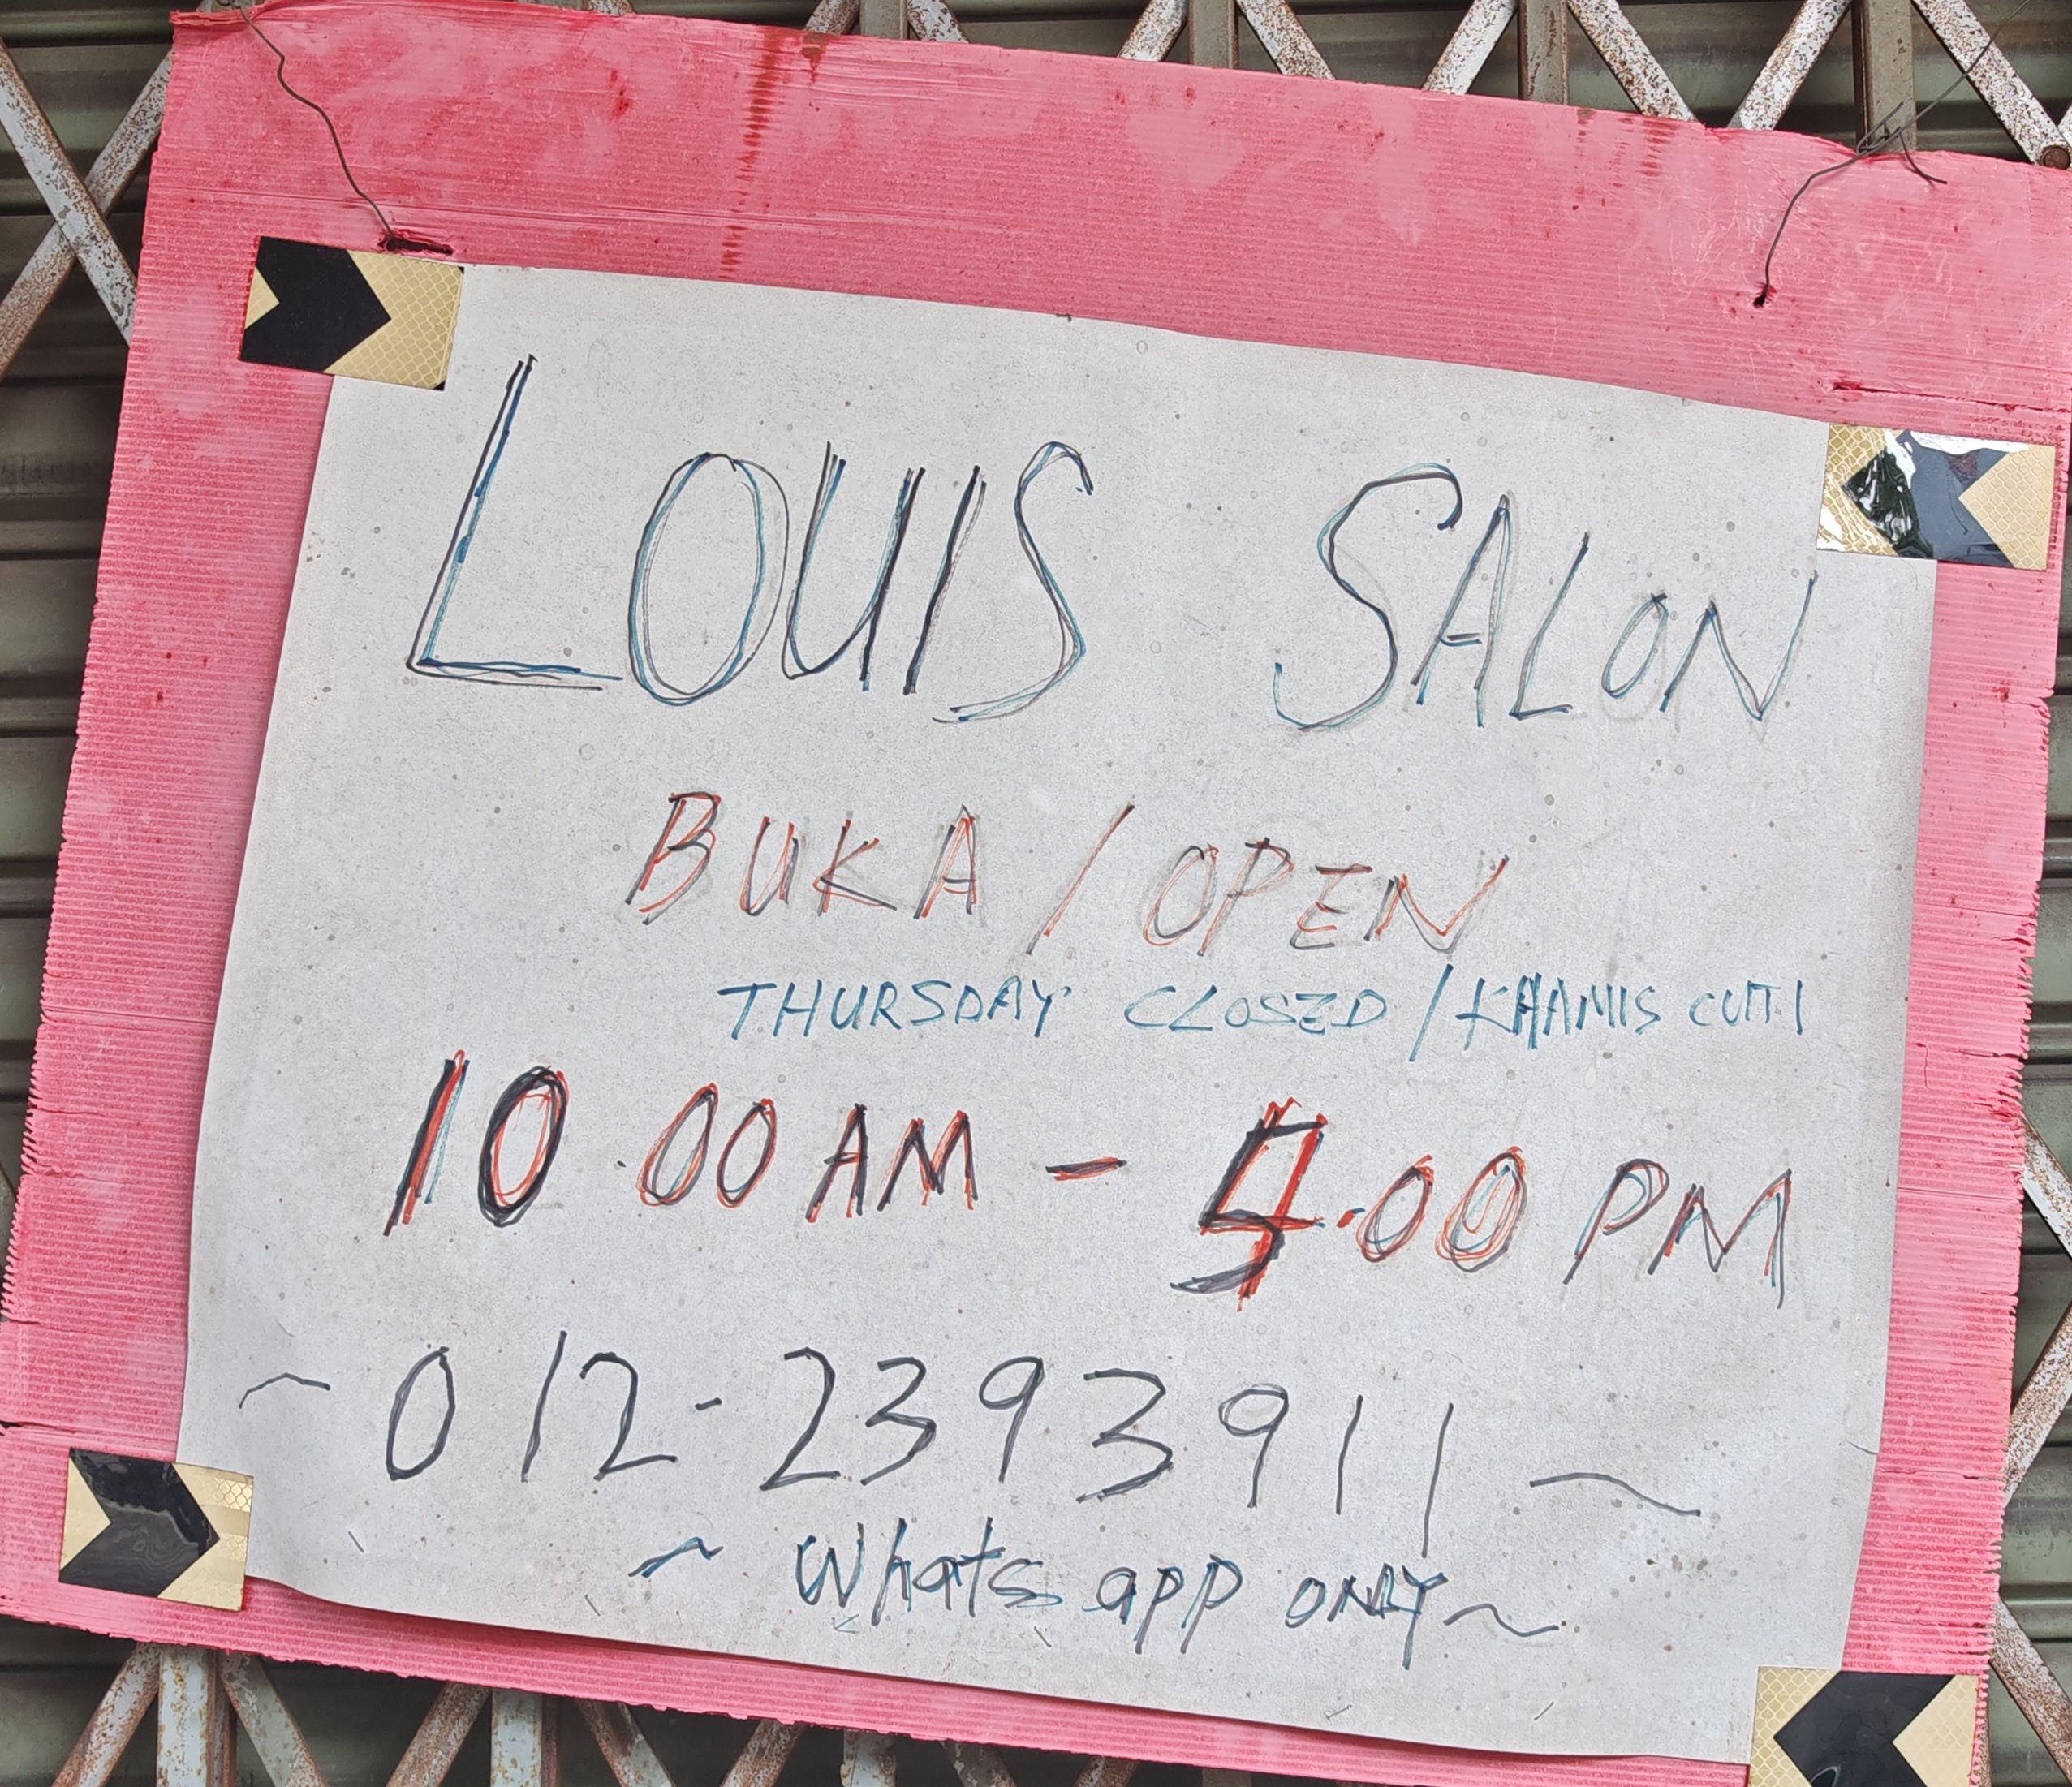 LOUIS SALON
BUKA / OPEN
THURSDAY CLOSED / KHAMIS CUTI
10.00 AM - 4.00 PM
~ 012-2393911 ~
~ Whats app ONLY ~